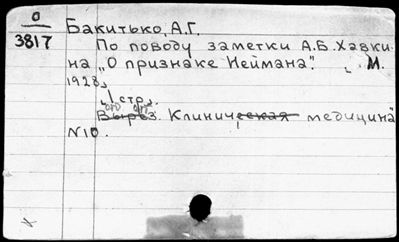 0
3817
Бакитько, А.Г.
По поводу заметки А.Б. Хавки-
на „О признаке Неймана". М.
1928,
1 стр.
Вырез. Клиническая медицина
N10.